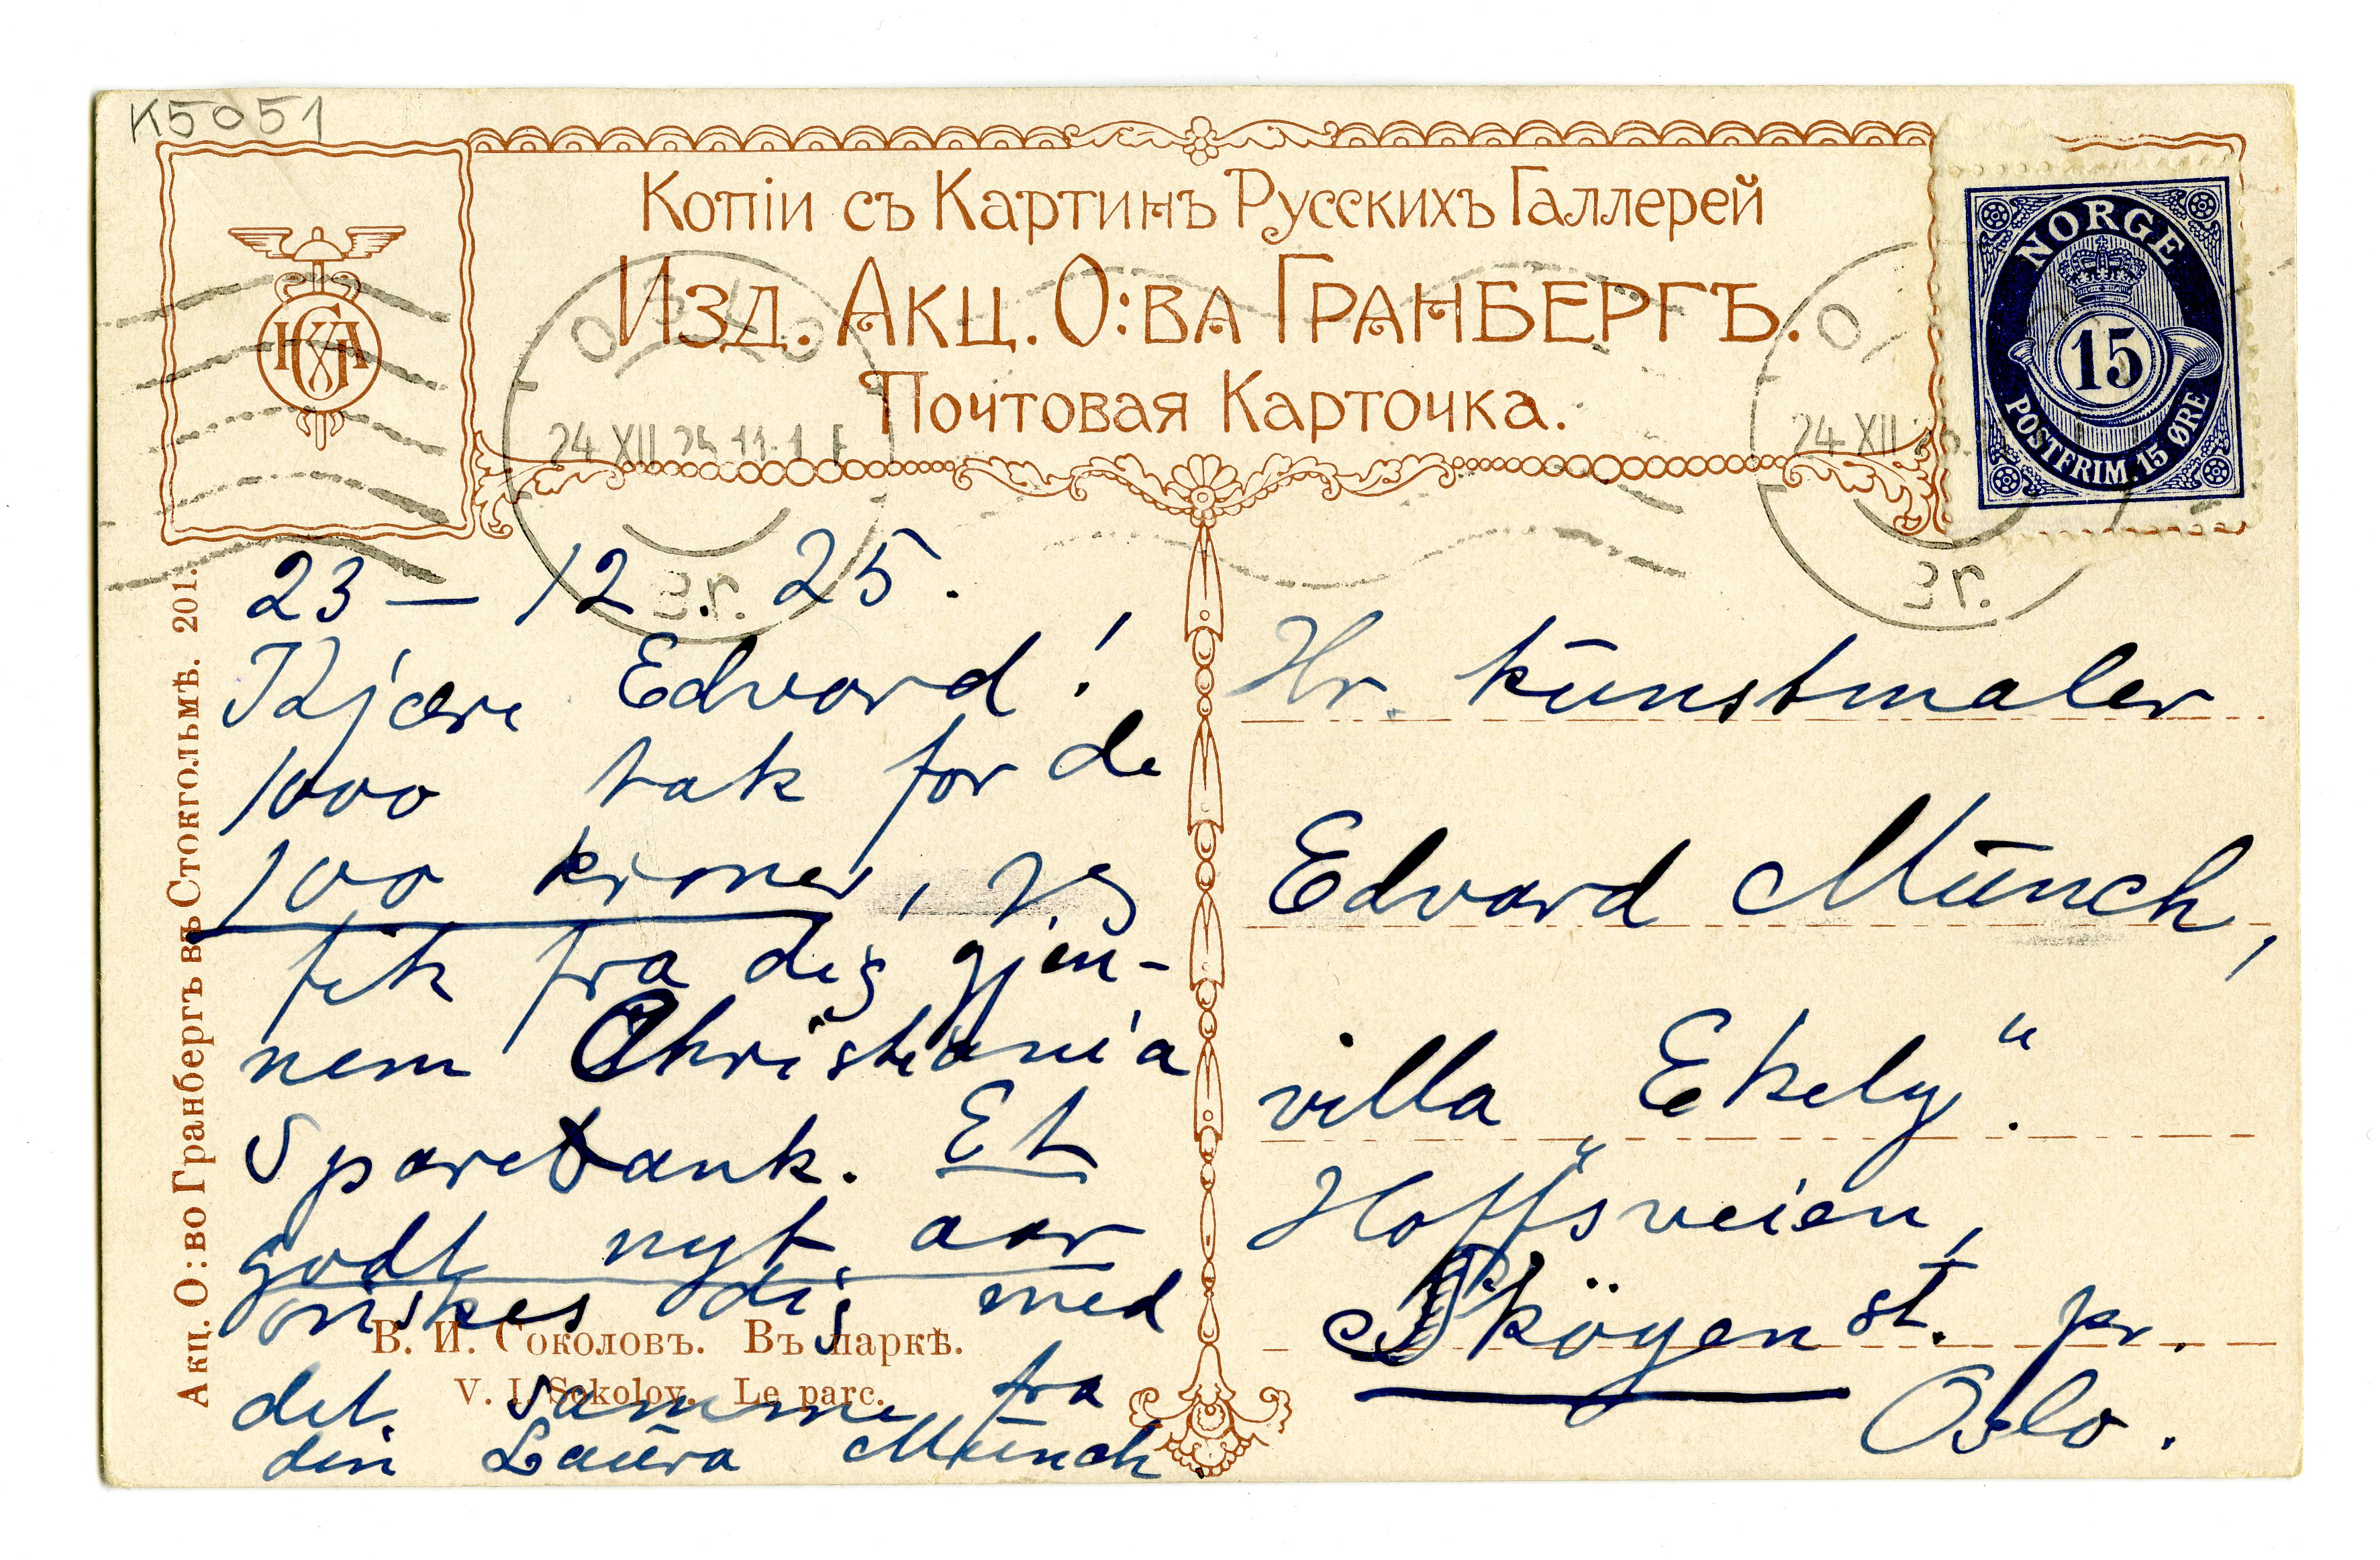 K5051
Копіи съ Картинъ Русскихъ Галлерей
Изд. Акц. О:ва Гранбергъ.
Почтовая Карточка.
HGA
NORGE
15
POSTFRIM. 15 ØRE
OSLO
24 XII 25 11-1 E
Br.
O
24 XII
Br.
Акц. О:во Гранбергъ въ Стокгольмѣ. 201.
23 – 12. 25.
Kjære Edvard!
1000 tak for de
100 kroner, jeg
fik fra dig gjen-
nem Christiania
Sparebank. Et
godt nyt aar
önskes dig med
det samme fra
din Laŭra Mŭnch.
В. И. Соколовъ. Въ паркѣ.
V. I. Sokolov. Le parc.
Hr. kŭnstmaler
Edvard Mŭnch,
villa „Ekely“.
Hoffsveien,
Sköyen st. pr.
Oslo.